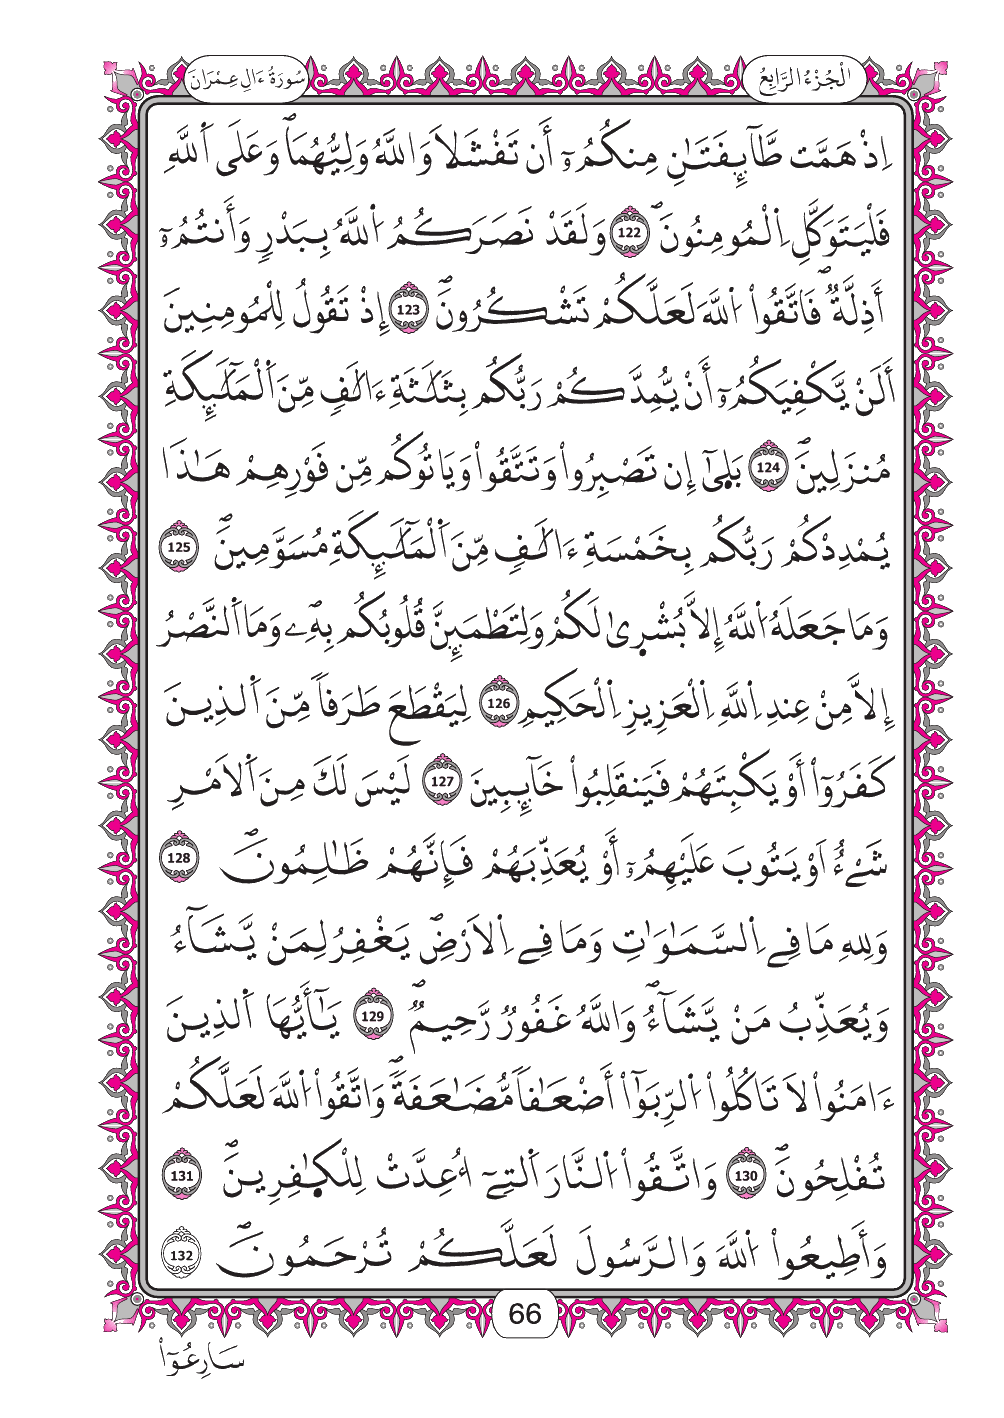 الْجُزْءُ الرَّابِعُ
سُورَةُ ءَالِ عِمْرَانَ
اِذْ هَمَّت طَّآئِفَتَـٰنِ مِنكُمُۥٓ أَن تَفْشَلَا وَاللَّهُ وَلِيُّهُمَاۖ وَعَلَى اَ۬للَّهِ
فَلْيَتَوَكَّلِ اِ۬لْمُومِنُونَۖ 122 وَلَقَدْ نَصَرَكُمُ اُ۬للَّهُ بِبَدْرٍ وَأَنتُمُۥٓ
أَذِلَّةٌۖ فَاتَّقُواْ اُ۬للَّهَ لَعَلَّكُمْ تَشْكُرُونَۖ 123 إِذْ تَقُولُ لِلْمُومِنِينَ
أَلَنْ يَّكْفِيَكُمُۥٓ أَنْ يُّمِدَّكُمْ رَبُّكُم بِثَلَـٰثَةِ ءَالَـٰفٍ مِّنَ اَ۬لْمَلَـٰٓئِكَةِ
مُنزَلِينَۖ 124 بَل۪يٰٓ إِن تَصْبِرُواْ وَتَتَّقُواْ وَيَاتُوكُم مِّن فَوْرِهِمْ هَـٰذَا
يُمْدِدْكُمْ رَبُّكُم بِخَمْسَةِ ءَالَـٰفٍ مِّنَ اَ۬لْمَلَـٰٓئِكَةِ مُسَوَّمِينَۖ 125
وَمَا جَعَلَهُ اُ۬للَّهُ إِلَّا بُشْر۪يٰ لَكُمْ وَلِتَطْمَئِنَّ قُلُوبُكُم بِهِۦۖ وَمَا اَ۬لنَّصْرُ
إِلَّا مِنْ عِندِ اِ۬للَّهِ اِ۬لْعَزِيزِ اِ۬لْحَكِيمِ 126 لِيَقْطَعَ طَرَفاً مِّنَ اَ۬لذِينَ
كَفَرُوٓاْ أَوْ يَكْبِتَهُمْ فَيَنقَلِبُواْ خَآئِبِينَ 127 لَيْسَ لَكَ مِنَ اَ۬لَامْرِ
شَےْءٌ اَوْ يَتُوبَ عَلَيْهِمُۥٓ أَوْ يُعَذِّبَهُمْ فَإِنَّهُمْ ظَـٰلِمُونَۖ 128
وَلِلهِ مَا فِے اِ۬لسَّمَـٰوَٰتِ وَمَا فِے اِ۬لَارْضِۖ يَغْفِرُ لِمَنْ يَّشَآءُ
وَيُعَذِّبُ مَنْ يَّشَآءُۖ وَاللَّهُ غَفُورٌ رَّحِيمٌۖ 129 يَـٰٓأَيُّهَا اَ۬لذِينَ
ءَامَنُواْ لَا تَاكُلُواْ اُ۬لرِّبَوٰٓاْ أَضْعَـٰفاً مُّضَـٰعَفَةًۖ وَاتَّقُواْ اُ۬للَّهَ لَعَلَّكُمْ
تُفْلِحُونَۖ 130 وَاتَّقُواْ اُ۬لنَّارَ اَ۬لتِےٓ أُعِدَّتْ لِلْك۪ـٰفِرِينَۖ 131
وَأَطِيعُواْ اُ۬للَّهَ وَالرَّسُولَ لَعَلَّكُمْ تُرْحَمُونَۖ 132
66
سَارِعُوٓاْ